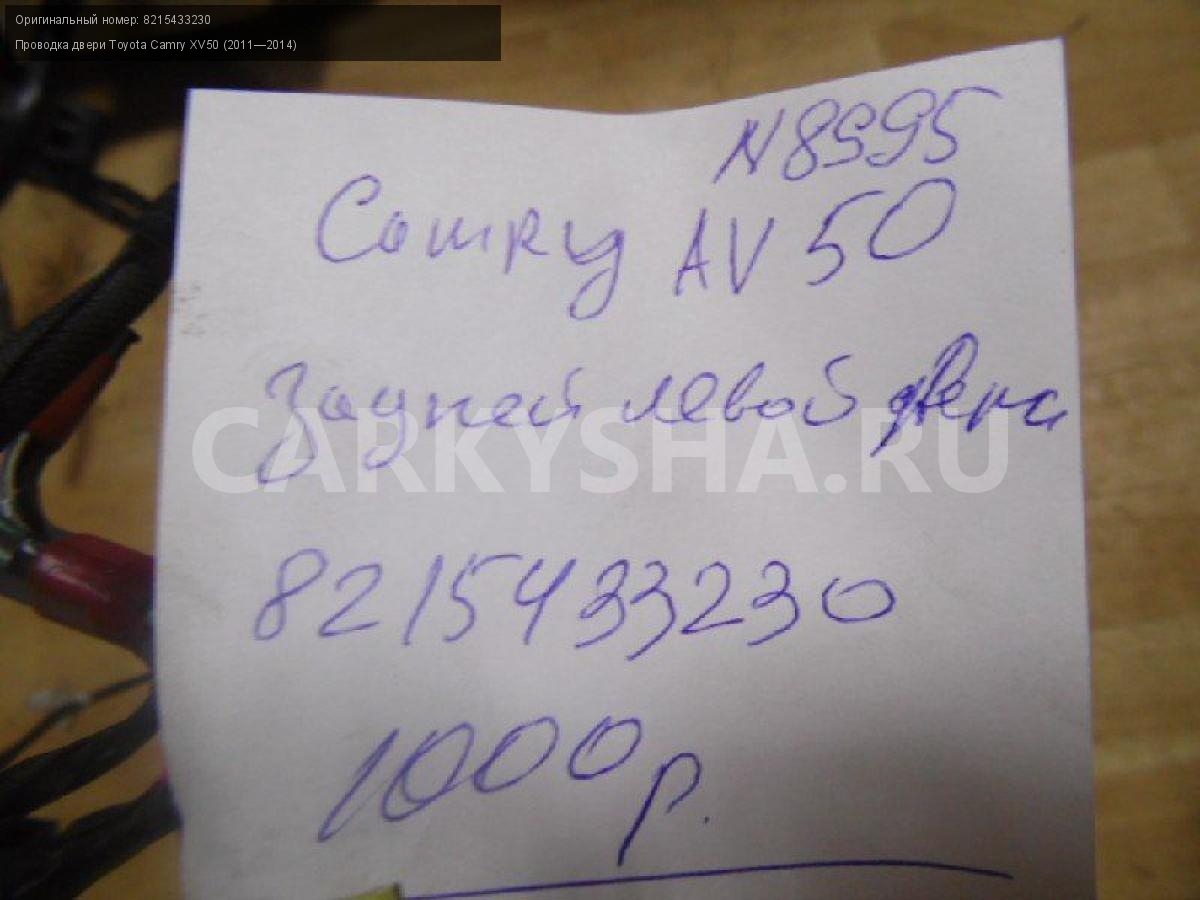 Оригинальный номер: 8215433230
Проводка двери Toyota Camry XV50 (2011—2014)
N8995
Camry AV50
Задней левой двери
CARKYSHA.RU
8215433230
1000 р.